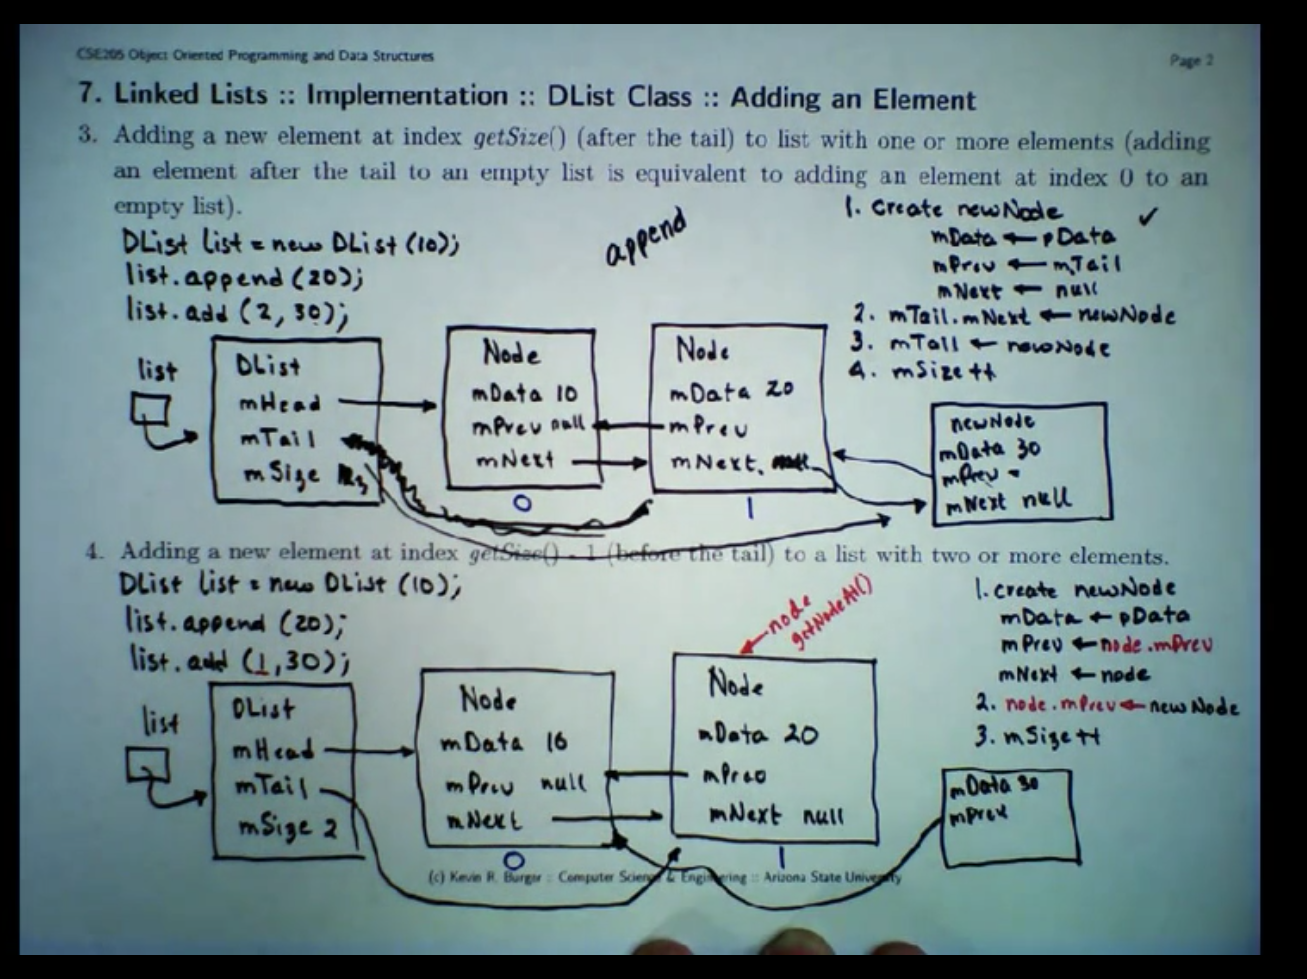 CSE205 Object Oriented Programming and Data Structures
Page 2
7. Linked Lists :: Implementation :: DList Class :: Adding an Element
3. Adding a new element at index getSize() (after the tail) to list with one or more elements (adding
an element after the tail to an empty list is equivalent to adding an element at index 0 to an
empty list).
DList list = new DList (10);
list.append (20);
list.add (2, 30);
append
1. Create newNode ✓
mData ← pData
mPrev ← mTail
mNext ← null
2. mTail.mNext ← newNode
3. mTail ← newNode
4. mSize ++
list
DList
mHead
mTail
mSize 3
Node
mData 10
mPrev null
mNext
0
Node
mData 20
mPrev
mNext
1
newNode
mData 30
mPrev
mNext null
4. Adding a new element at index getSize() - 1 (before the tail) to a list with two or more elements.
DList list = new DList (10);
list.append (20);
list.add (1, 30);
node
getNodeAt()
1. create newNode
mData ← pData
mPrev ← node.mPrev
mNext ← node
2. node.mPrev ← newNode
3. mSize ++
list
DList
mHead
mTail
mSize 2
Node
mData 10
mPrev null
mNext
0
Node
mData 20
mPrev
mNext null
1
mData 30
mPrev
(c) Kevin R. Burger :: Computer Science & Engineering :: Arizona State University